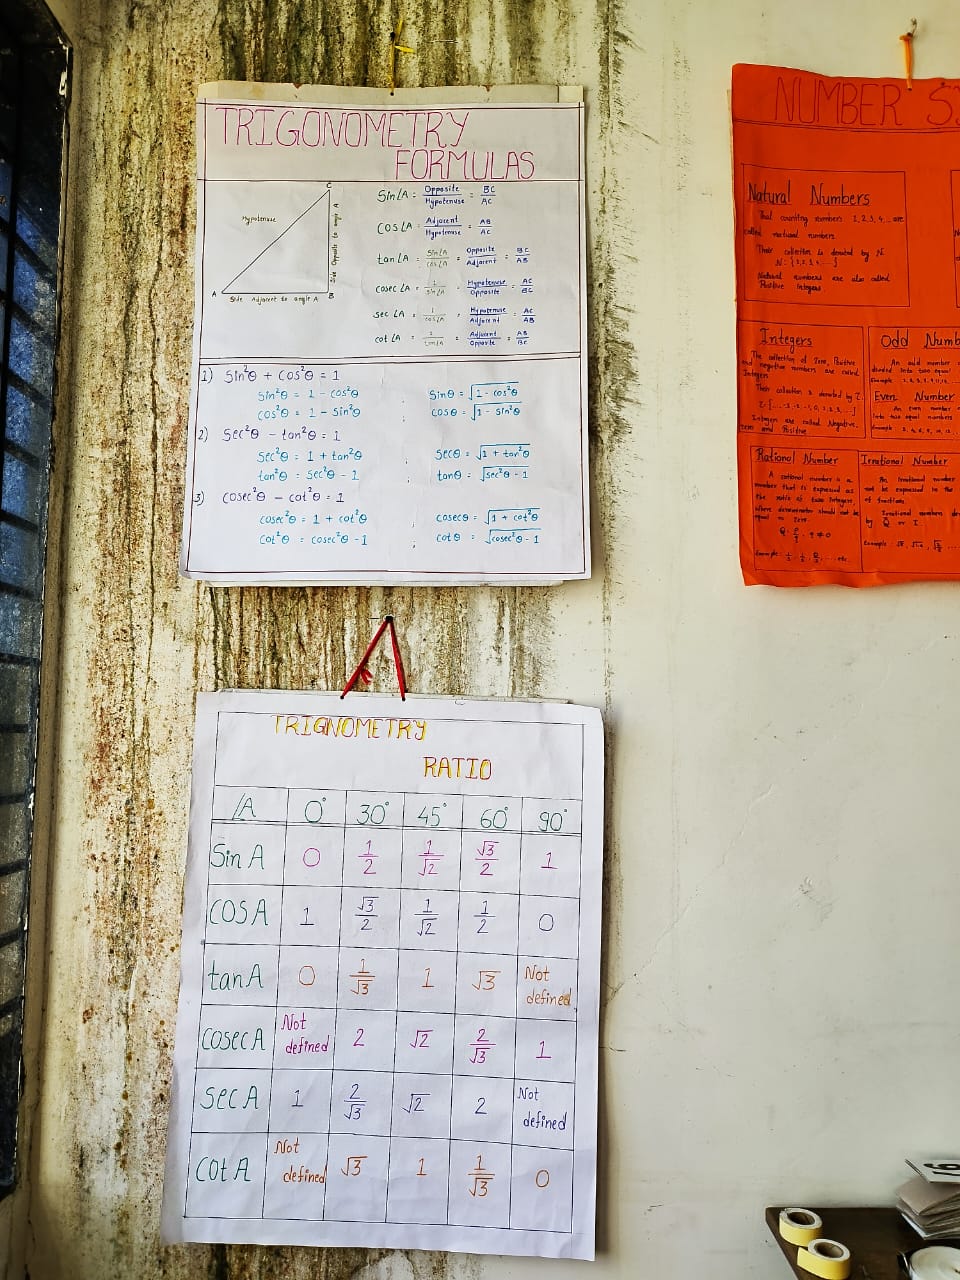 TRIGONOMETRY
FORMULAS
C
Hypotenuse
Side Opposite to angle A
A
Side Adjacent to angle A
B
Sin∠A = Opposite/Hypotenuse = BC/AC
cos∠A = Adjacent/Hypotenuse = AB/AC
tan∠A = Sin∠A/cos∠A = Opposite/Adjacent = BC/AB
cosec∠A = 1/sin∠A = Hypotenuse/Opposite = AC/BC
sec∠A = 1/cos∠A = Hypotenuse/Adjacent = AC/AB
cot∠A = 1/tan∠A = Adjacent/Opposite = AB/BC
1) Sin²θ + cos²θ = 1
Sin²θ = 1 - cos²θ ; Sinθ = √1 - cos²θ
cos²θ = 1 - sin²θ cosθ = √1 - sin²θ
2) Sec²θ - tan²θ = 1
sec²θ = 1 + tan²θ secθ = √1 + tan²θ
tan²θ = sec²θ - 1 ; tanθ = √sec²θ - 1
3) cosec²θ - cot²θ = 1
cosec²θ = 1 + cot²θ cosecθ = √1 + cot²θ
cot²θ = cosec²θ - 1 ; cotθ = √cosec²θ - 1
TRIGNOMETRY
RATIO
∠A 0° 30° 45° 60° 90°
Sin A 0 1/2 1/√2 √3/2 1
COS A 1 √3/2 1/√2 1/2 0
tan A 0 1/√3 1 √3 Not defined
cosec A Not defined 2 √2 2/√3 1
sec A 1 2/√3 √2 2 Not defined
cot A Not defined √3 1 1/√3 0
NUMBER
Natural Numbers
That counting numbers 1,2,3,4,... are
called natural numbers.
Their collection is denoted by N.
N: {1,2,3,4,....}
Natural numbers are also called
Positive Integers
Integers
The collection of Zero, Positive
and negative numbers are called
Integers
Their collection is denoted by Z.
Integers are called Negative,
Zero and Positive.
Odd Numb
An odd number
divided into two equal
Even Number
An even number
into two equal numbers
Example 2, 4, 6, 8, 10, 12
Rational Number
A rational number is a
number that is expressed as
the ratio of two Integers,
where denominator should not be
equal to Zero.
Q: p/q, q ≠ 0
Irrational Number
An Irrational number
not be expressed in the
of fractions.
Irrational numbers
by Q or I.